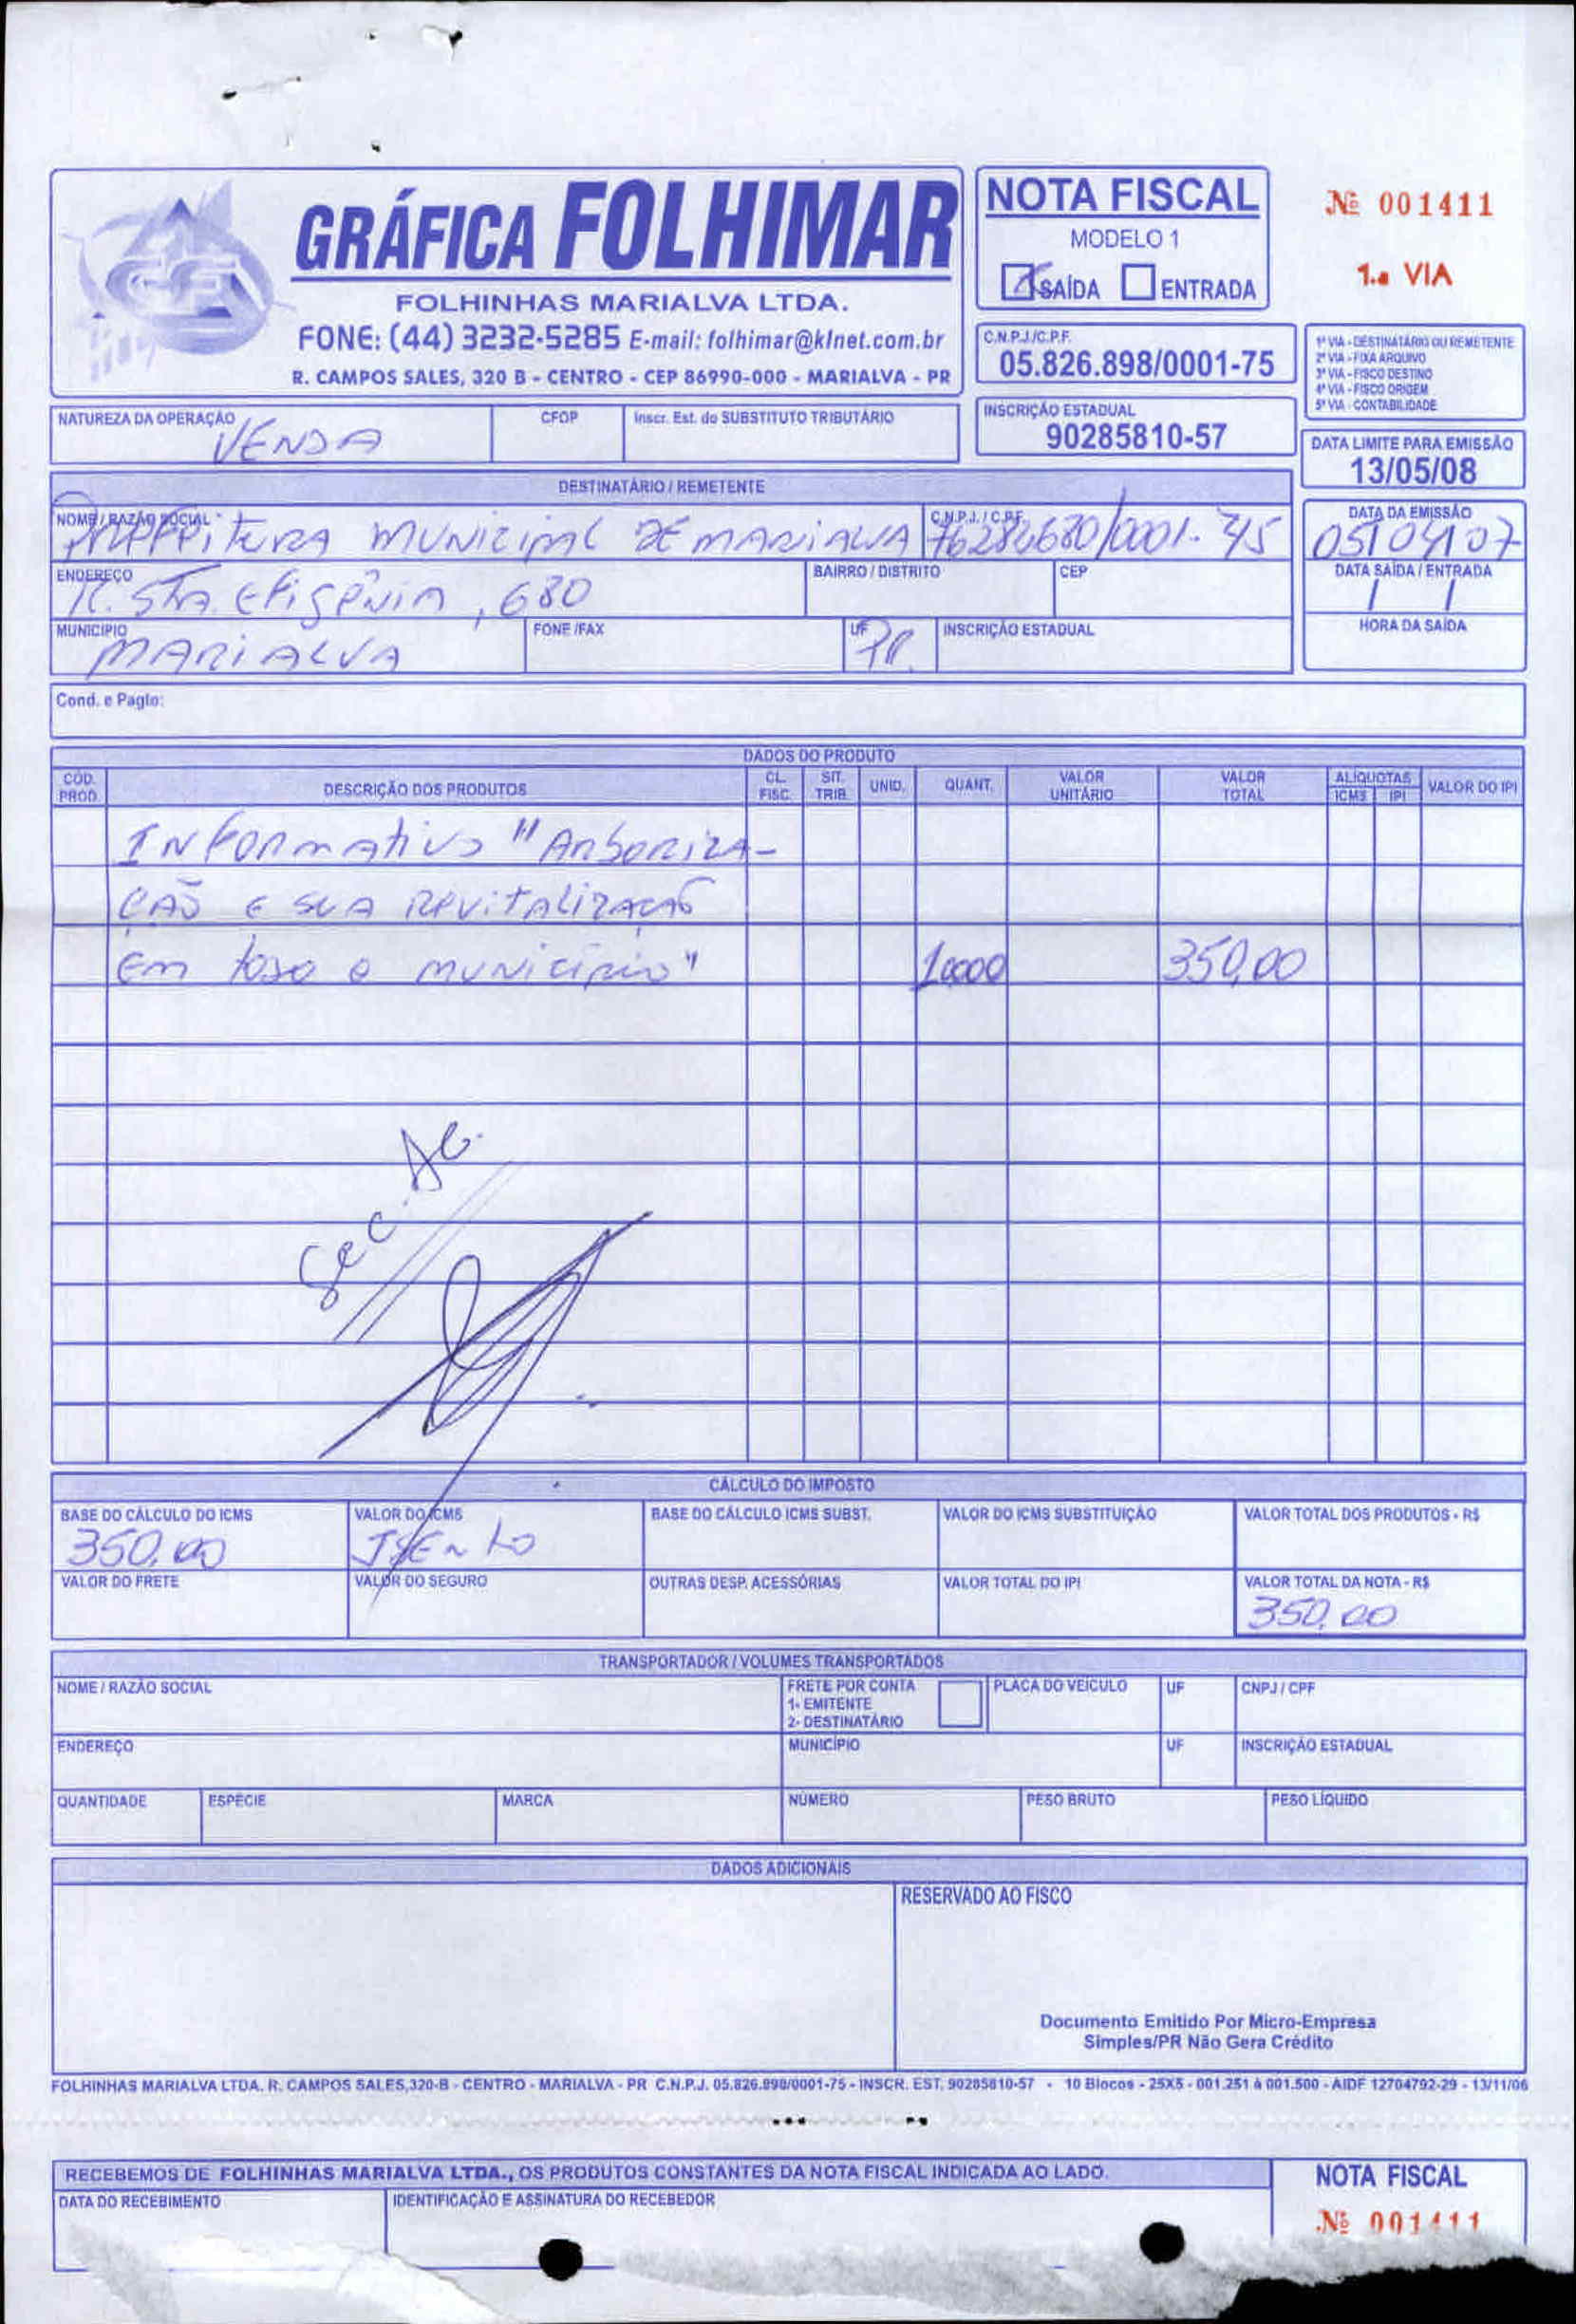 GRÁFICA FOLHIMAR
FOLHINHAS MARIALVA LTDA.
FONE: (44) 3232-5285 E-mail: folhimar@klnet.com.br
R. CAMPOS SALES, 320 B - CENTRO - CEP 86990-000 - MARIALVA - PR
NOTA FISCAL
MODELO 1
X SAÍDA ENTRADA
Nº 001411
1.a VIA
C.N.P.J./C.P.F.
05.826.898/0001-75
1ª VIA - DESTINATÁRIO OU REMETENTE
2ª VIA - FIXA ARQUIVO
3ª VIA - FISCO DESTINO
4ª VIA - FISCO ORIGEM
5ª VIA - CONTABILIDADE
NATUREZA DA OPERAÇÃO
VENDA
CFOP
Inscr. Est. do SUBSTITUTO TRIBUTÁRIO
INSCRIÇÃO ESTADUAL
90285810-57
DATA LIMITE PARA EMISSÃO
13/05/08
DESTINATÁRIO / REMETENTE
NOME / RAZÃO SOCIAL
PREFEITURA MUNICIPAL DE MARIALVA
C.N.P.J. / C.P.F.
76282680/0001-45
DATA DA EMISSÃO
05/04/07
ENDEREÇO
R. STA. EFIGÊNIA, 680
BAIRRO / DISTRITO
CEP
DATA SAÍDA / ENTRADA
/ /
MUNICÍPIO
MARIALVA
FONE /FAX
UF
PR.
INSCRIÇÃO ESTADUAL
HORA DA SAÍDA
Cond. e Pagto:
DADOS DO PRODUTO
CÓD. PROD. DESCRIÇÃO DOS PRODUTOS CL. FISC. SIT. TRIB. UNID. QUANT. VALOR UNITÁRIO VALOR TOTAL ALÍQUOTAS ICMS IPI VALOR DO IPI
INFORMATIVO "ARBORIZA-
ÇÃO E SUA REVITALIZAÇÃO
EM TODO O MUNICÍPIO" 10000 350,00
Sec. Ad.
CÁLCULO DO IMPOSTO
BASE DO CÁLCULO DO ICMS
350,00
VALOR DO ICMS
ISENTO
BASE DO CÁLCULO ICMS SUBST.
VALOR DO ICMS SUBSTITUIÇÃO
VALOR TOTAL DOS PRODUTOS - R$
VALOR DO FRETE
VALOR DO SEGURO
OUTRAS DESP. ACESSÓRIAS
VALOR TOTAL DO IPI
VALOR TOTAL DA NOTA - R$
350,00
TRANSPORTADOR / VOLUMES TRANSPORTADOS
NOME / RAZÃO SOCIAL
FRETE POR CONTA
1- EMITENTE
2- DESTINATÁRIO
PLACA DO VEÍCULO
UF
CNPJ / CPF
ENDEREÇO
MUNICÍPIO
UF
INSCRIÇÃO ESTADUAL
QUANTIDADE
ESPÉCIE
MARCA
NÚMERO
PESO BRUTO
PESO LÍQUIDO
DADOS ADICIONAIS
RESERVADO AO FISCO
Documento Emitido Por Micro-Empresa
Simples/PR Não Gera Crédito
FOLHINHAS MARIALVA LTDA. R. CAMPOS SALES,320-B - CENTRO - MARIALVA - PR C.N.P.J. 05.826.898/0001-75 - INSCR. EST. 90285810-57 - 10 Blocos - 25X5 - 001.251 à 001.500 - AIDF 12704792-29 - 13/11/06
RECEBEMOS DE FOLHINHAS MARIALVA LTDA., OS PRODUTOS CONSTANTES DA NOTA FISCAL INDICADA AO LADO.
DATA DO RECEBIMENTO
IDENTIFICAÇÃO E ASSINATURA DO RECEBEDOR
NOTA FISCAL
Nº 001411